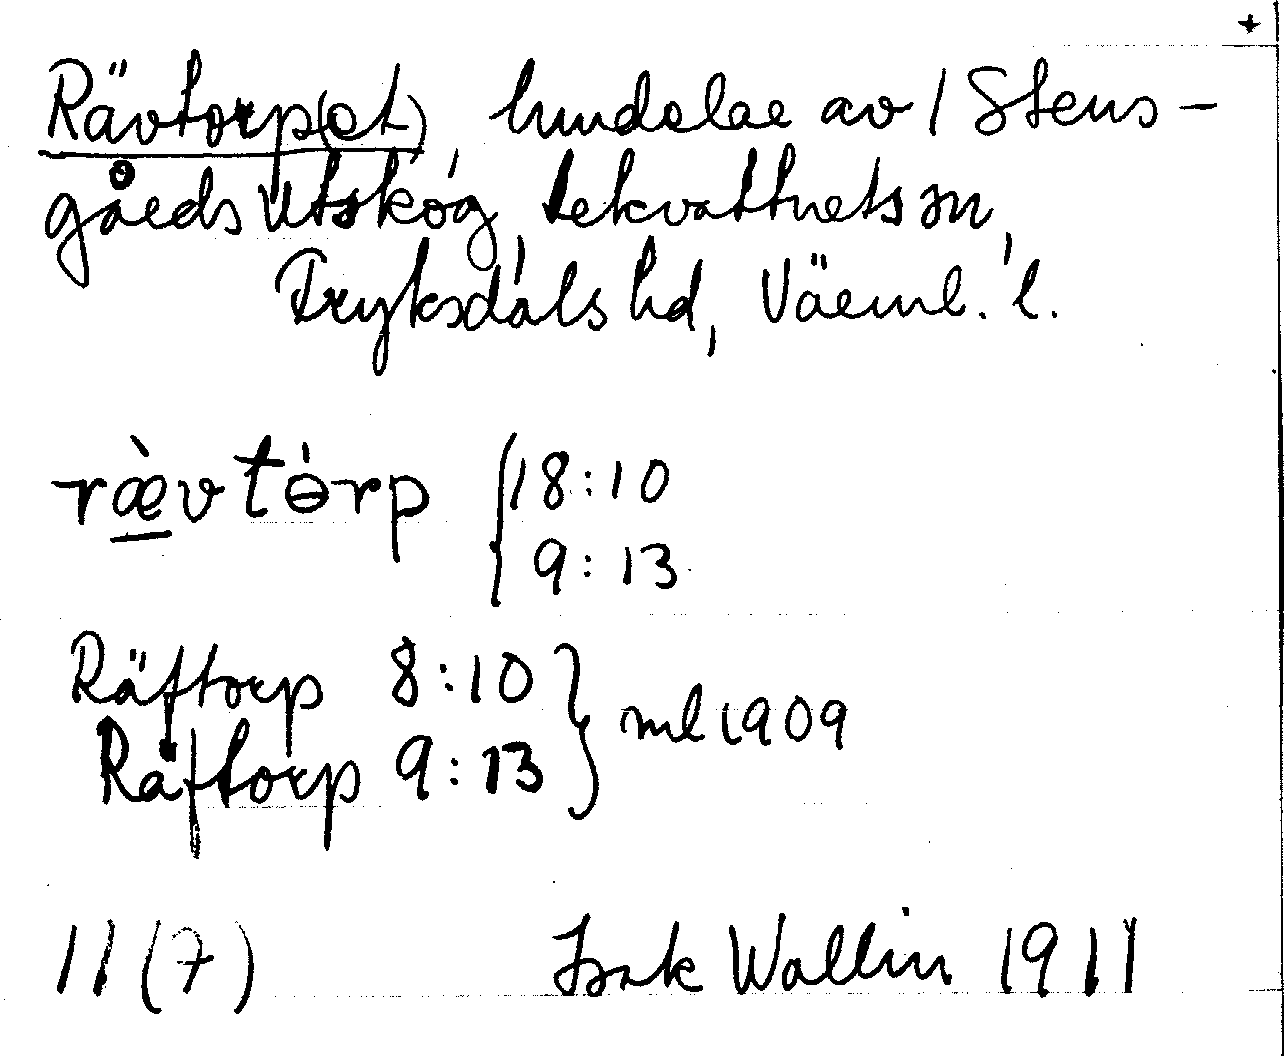 +
Rävtorp(et), hmdelar av 1 Stens-
gårds utskog, Lekvattnets sn,
Fryksdals hd, Värml. l.
rævtɵrp { 18:10
9:13
Räftorp 8:10 } ml 1909
Räftorp 9:13
11 (7) Isak Wallin 1911